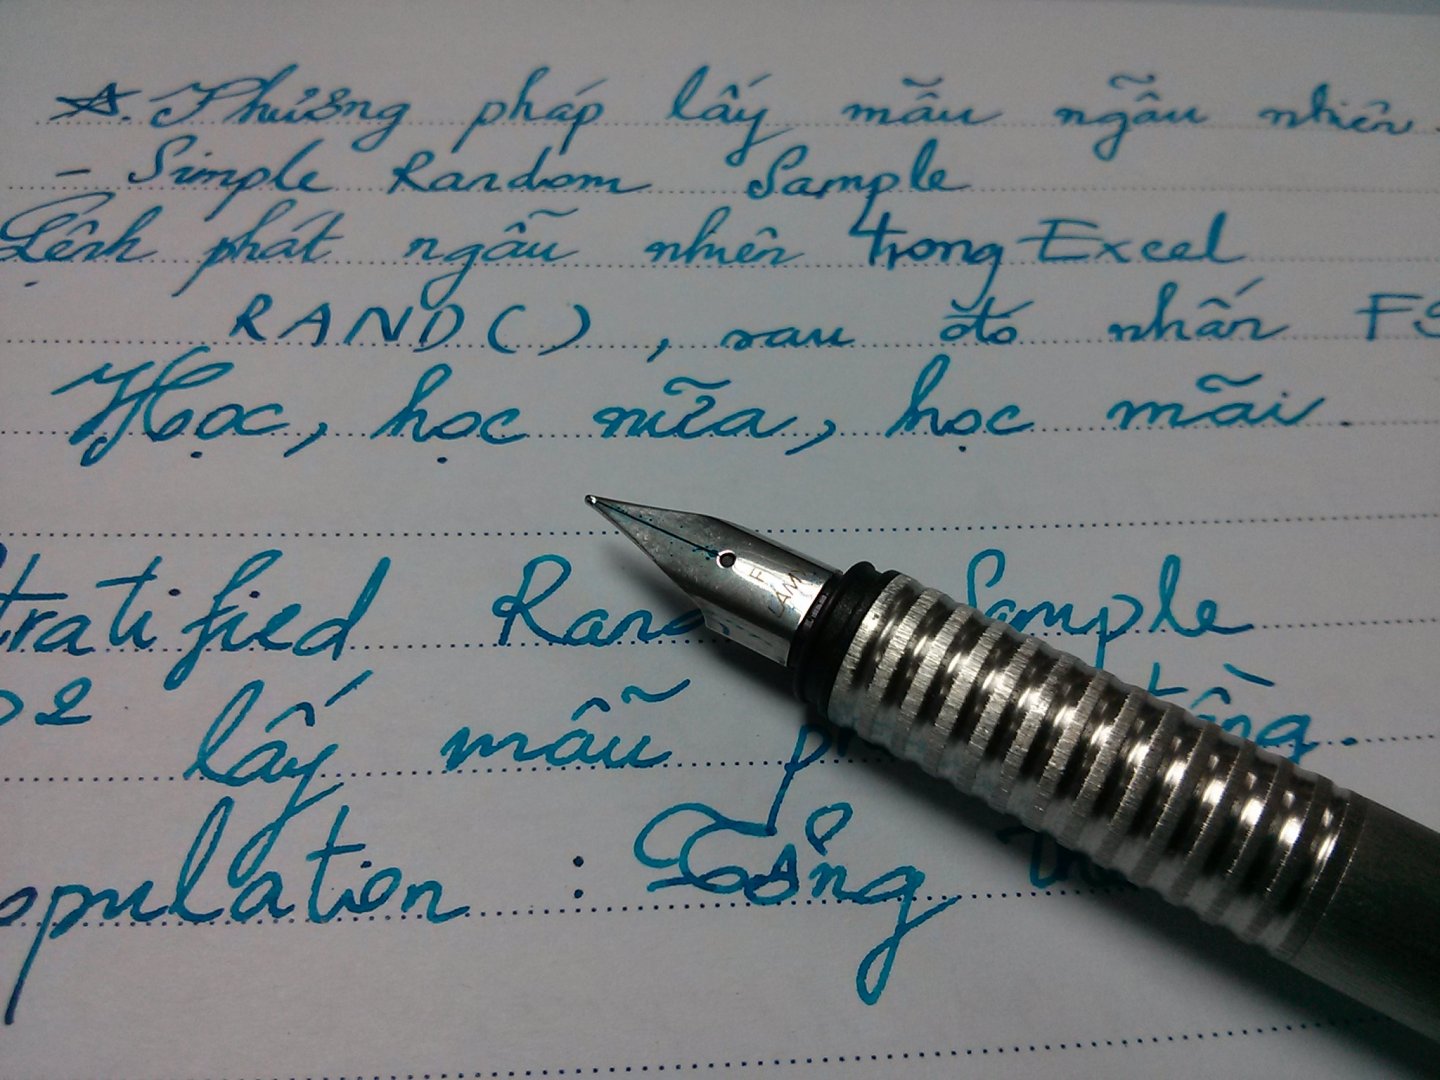 Phương pháp lấy mẫu ngẫu nhiên.
- Simple Random Sample
Lệnh phát ngẫu nhiên trong Excel
RAND() , sau đó nhấn
Học, học nữa, học mãi.
F
LAMY
tratified Sample
lấy mẫu tầng.
opulation : Tổng